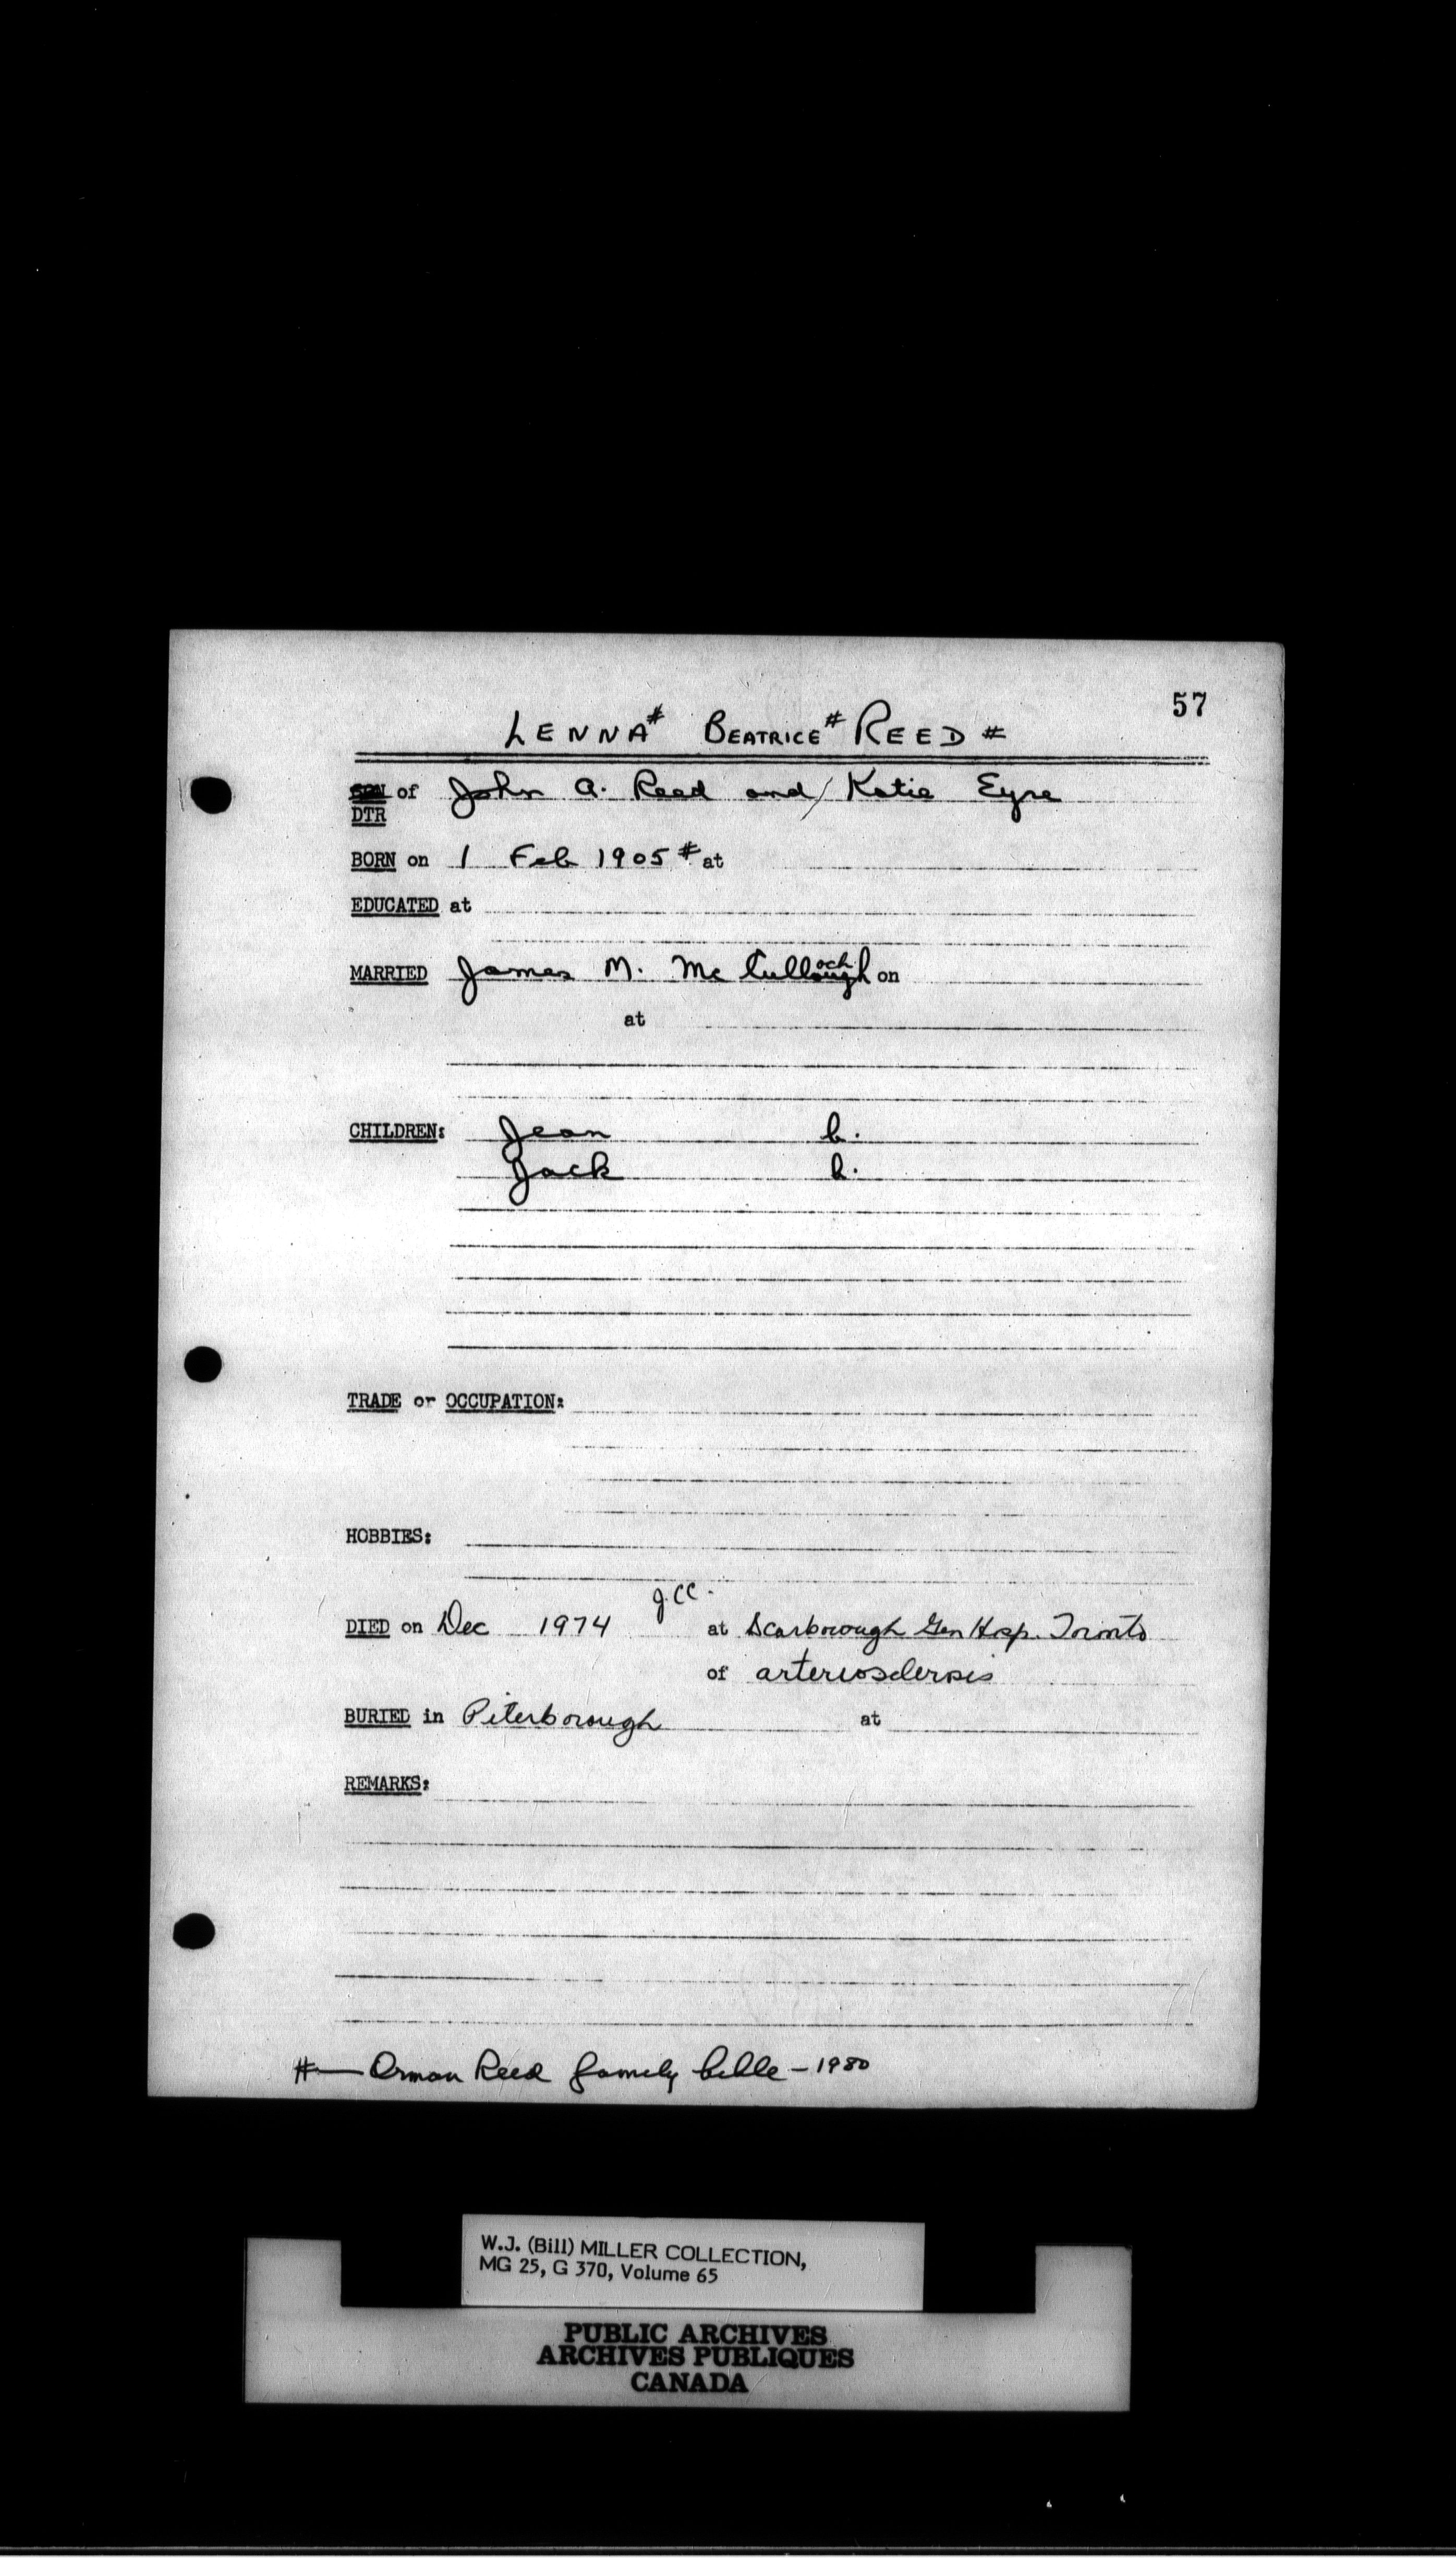 57
LENNA# BEATRICE# REED #
SON of John A. Reed and / Katie Eyre
DTR
BORN on 1 Feb 1905 # at
EDUCATED at
MARRIED James M. McCullough och on
at
CHILDREN: Jean b.
Jack b.
TRADE or OCCUPATION:
HOBBIES:
J.CC.
DIED on Dec 1974 at Scarborough Gen Hosp. Toronto
of arteriosclerosis
BURIED in Peterborough at
REMARKS:
# — Orman Reed family bible - 1980
W.J. (Bill) MILLER COLLECTION,
MG 25, G 370, Volume 65
PUBLIC ARCHIVES
ARCHIVES PUBLIQUES
CANADA